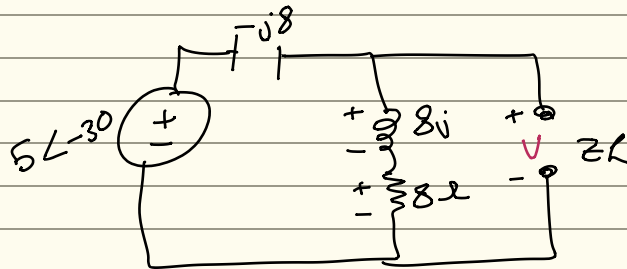 -j8
5∠-30
+
-
+
8j
-
+
8Ω
-
+
V
-
ZL